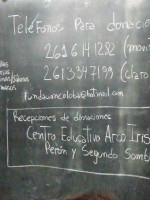 Teléfonos Para donacio
2616141282 (movi
2613347199 (claro
fundacioncoloba@hotmail.com
Recepciones de donaciones
Centro Educativo Arco Iris
Perón y Segundo Somb